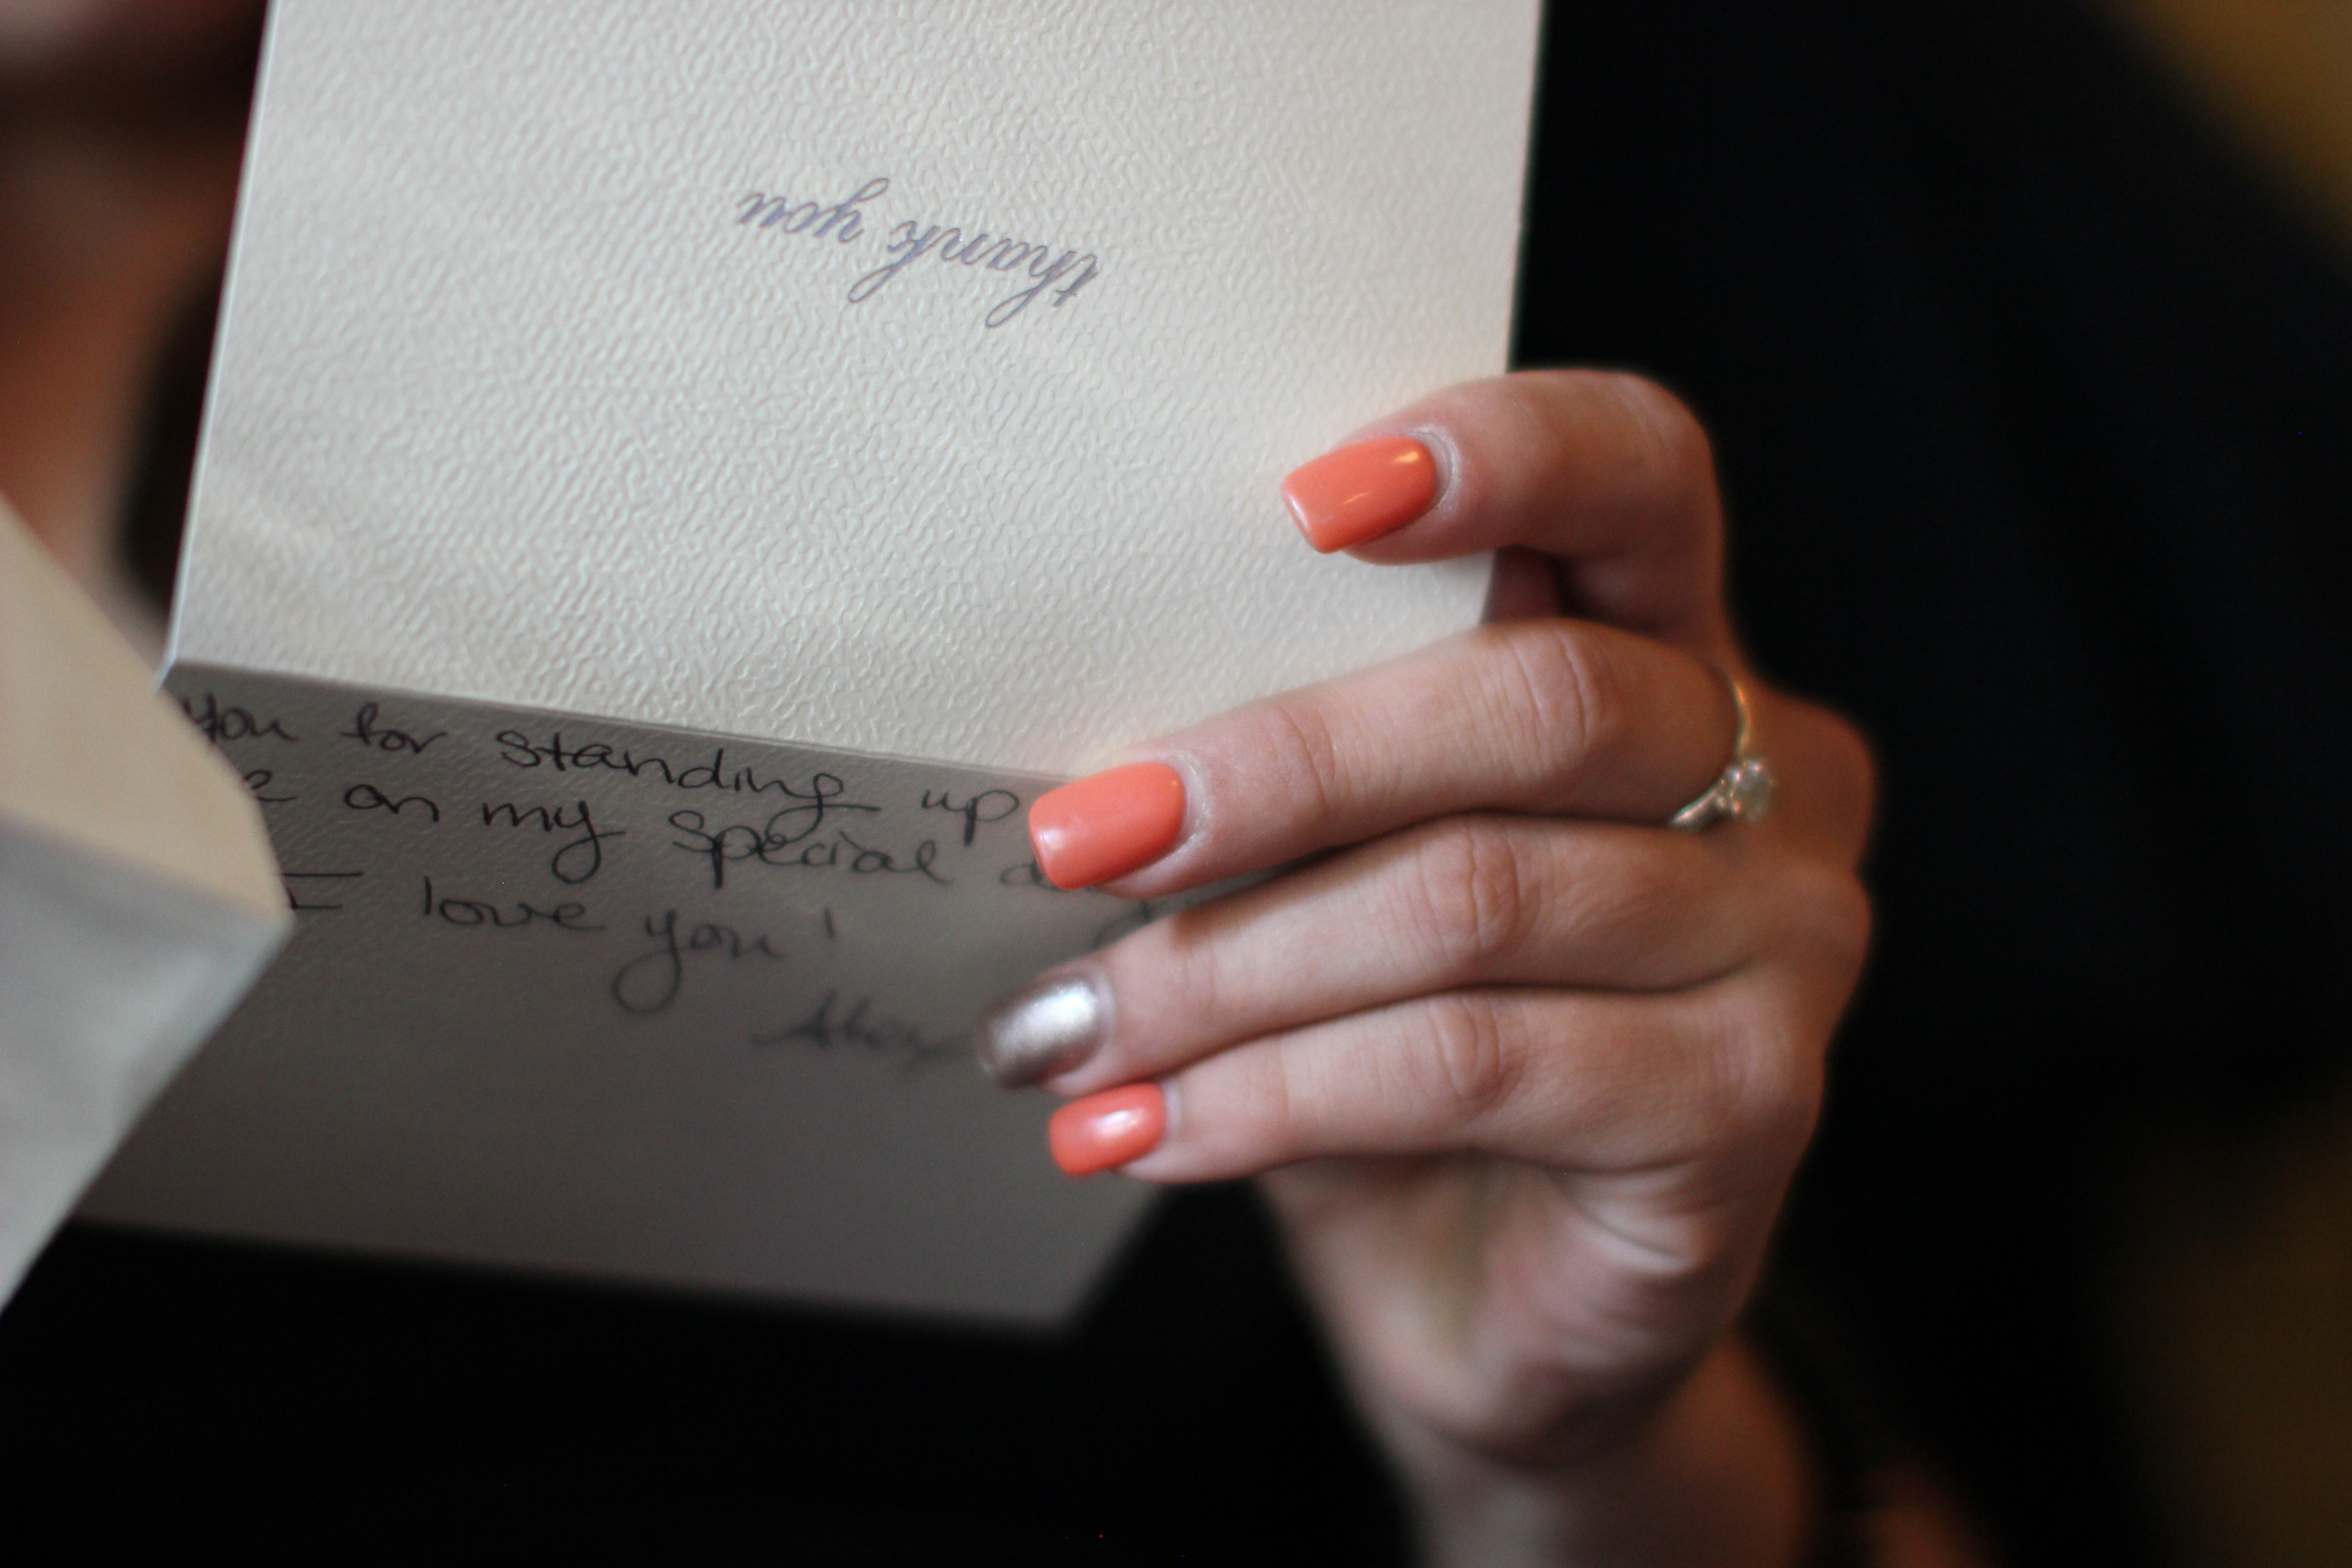 thank you
you for standing up
on my special
I love you!